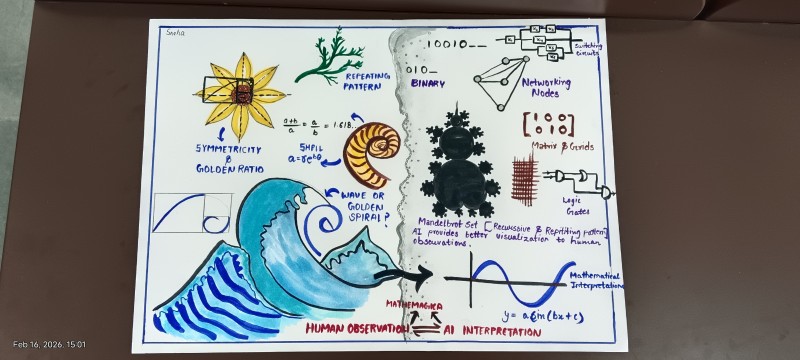 Sneha
REPEATING
PATTERN
SYMMETRICITY
&
GOLDEN RATIO
a+b/a = a/b = 1.618..
SHELL
WAVE OR
GOLDEN
SPIRAL?
10010__
010_
BINARY
Switching
circuits
Networking
Nodes
[1 0 0
0 1 0]
Matrix & Grids
Logic
Gates
Mandelbrot Set [Recursive & Repititing pattern]
AI provides better visualization to human
observations.
Mathematical
Interpretation
y = a sin(bx+c)
MATHEMAGICA
HUMAN OBSERVATION ⇌ AI INTERPRETATION
Feb 16, 2026, 15:01